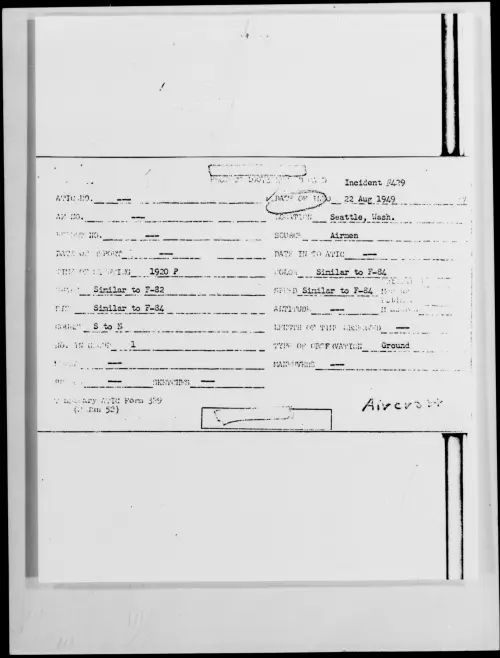 Incident #479
ATIC NO. ---- DATE OF INFO 22 Aug 1949
AF NO. ---- LOCATION Seattle, Wash.
REPORT NO. ---- SOURCE Airmen
DATE OF REPORT ---- DATE IN TO ATIC ----
TIME OF SIGHTING 1920 P COLOR Similar to F-84
SHAPE Similar to F-82 SPEED Similar to F-84
SIZE Similar to F-84 ALTITUDE ----
COURSE S to N LENGTH OF TIME OBSERVED ----
NO. IN GROUP 1 TYPE OF OBSERVATION Ground
---- MANEUVERS ----
---- SKETCHES ----
Temporary ATIC Form 329
(2 Jan 52)
Aircraft